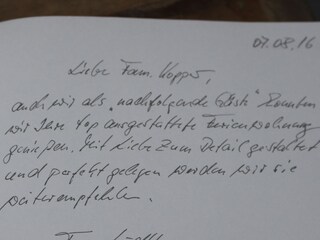 07.08.16
Liebe Fam. Hopps,
auch wir als "nachfolgende Gäste" konnten
wir Ihre top ausgestattete Ferienwohnung
genießen. Mit Liebe zum Detail gestaltet
und perfekt gelegen werden wir sie
weiterempfehlen.